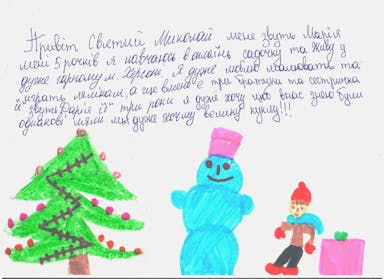 Привіт Святий Миколай мене звуть Марія
мені 5 рочків я навчаюсь в онлайн садочку та живу у
дуже гарному м. Херсон. Я дуже люблю малювати та
играть лялікам, а ще в мене є три братики та сестричка
її звуть Дарія їй три роки я дуже хочу щоб в нас з нею були
однакові ляльи мы дуже хочему велику куклу!!!